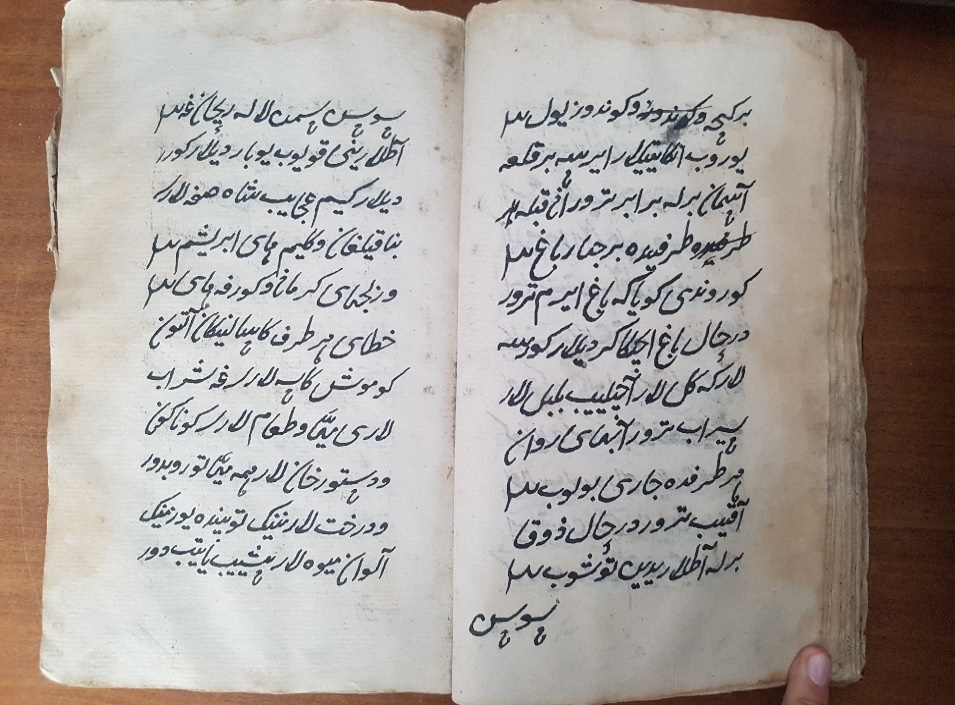 بر کیچه و کوندوز یول
یوروب انکا یتیلار ایرسه بر قلعه
آسمان برله برابر ترور آنی قبله
طرفیده بر چهار باغ
کوروندی کویا که باغ ایرم ترور
در حال باغ ایچکا کردیلار کورسه
لار که کل لار آچیلیب بلبل لار
سیراب ترور آبهای روان
هر طرفده جاری بولوب
آقیب ترور در حال ذوق
برله آطلاریدین توشوب
سوسن
سوسن سمن لاله ریحان غه
آطلارینی قویوب یوباردیلار کور
دیلار کیم عجایب شاه صفه لار
بنا قیلغان و کلیم های ابریشم
و زلجهای کرمان و کورفه های
خطای هر طرف کا سالنیکان آلتون
کوموش کاسه لارغه شراب
لاری مهیا و طعام لار کوناکون
و دستور خان لار همه مهیا توروبدور
و درخت لارنینک توبنده یورتینک
الوان میوه لار پیشیب یاتیب دور